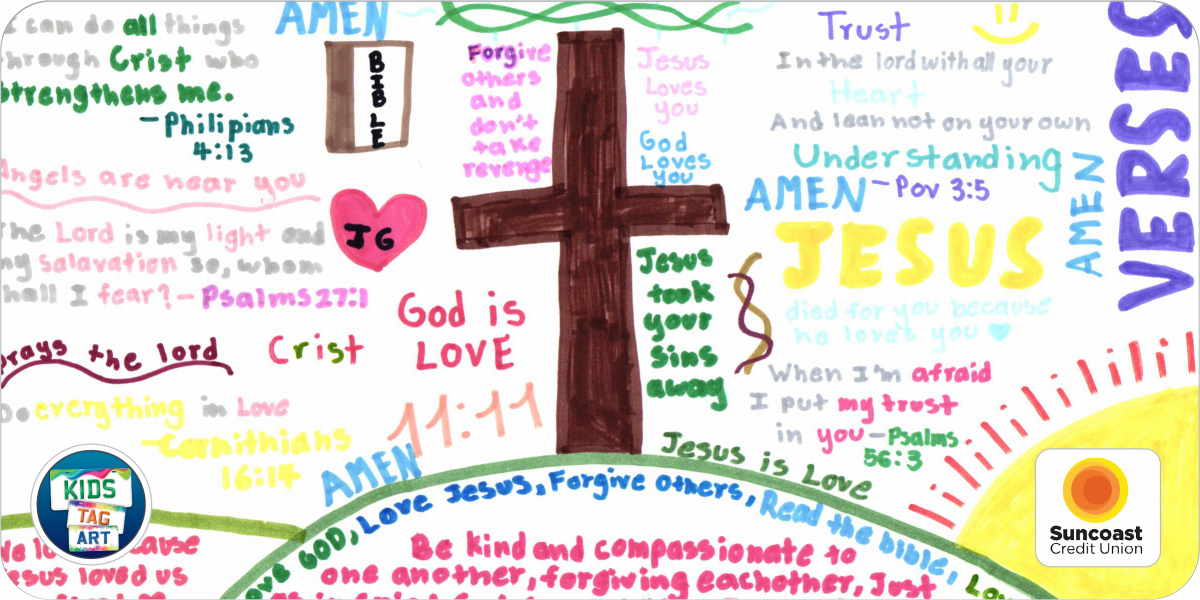 I can do all things
through Crist who
strengthens me.
-Philipians
4:13
AMEN
BIBLE
Angels are near you
The Lord is my light and
my salavation so, whom
shall I fear?-Psalms27:1
JG
prays the lord
Crist
Do everything in Love
-Cornithians
16:14
God is
LOVE
11:11
AMEN
Forgive
others
and
don't
take
revenge
Jesus
Loves
you
God
Loves
you
Jesus
took
your
sins
away
Trust
In the lord with all your
Heart
And lean not on your own
Understanding
AMEN -Pov 3:5
AMEN
VERSES
JESUS
died for you because
he loves you
When I'm afraid
I put my trust
in you-Psalms
56:3
Jesus is Love
Love GOD, Love Jesus, Forgive others, Read the bible,
Be kind and compassionate to
one another, forgiving eachother, Just
We cause
Jesus loved us
KIDS
TAG
ART
Suncoast
Credit Union